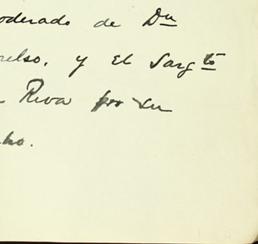 oderado de Dn
elso, y El Sargto
Riva por su
ho.